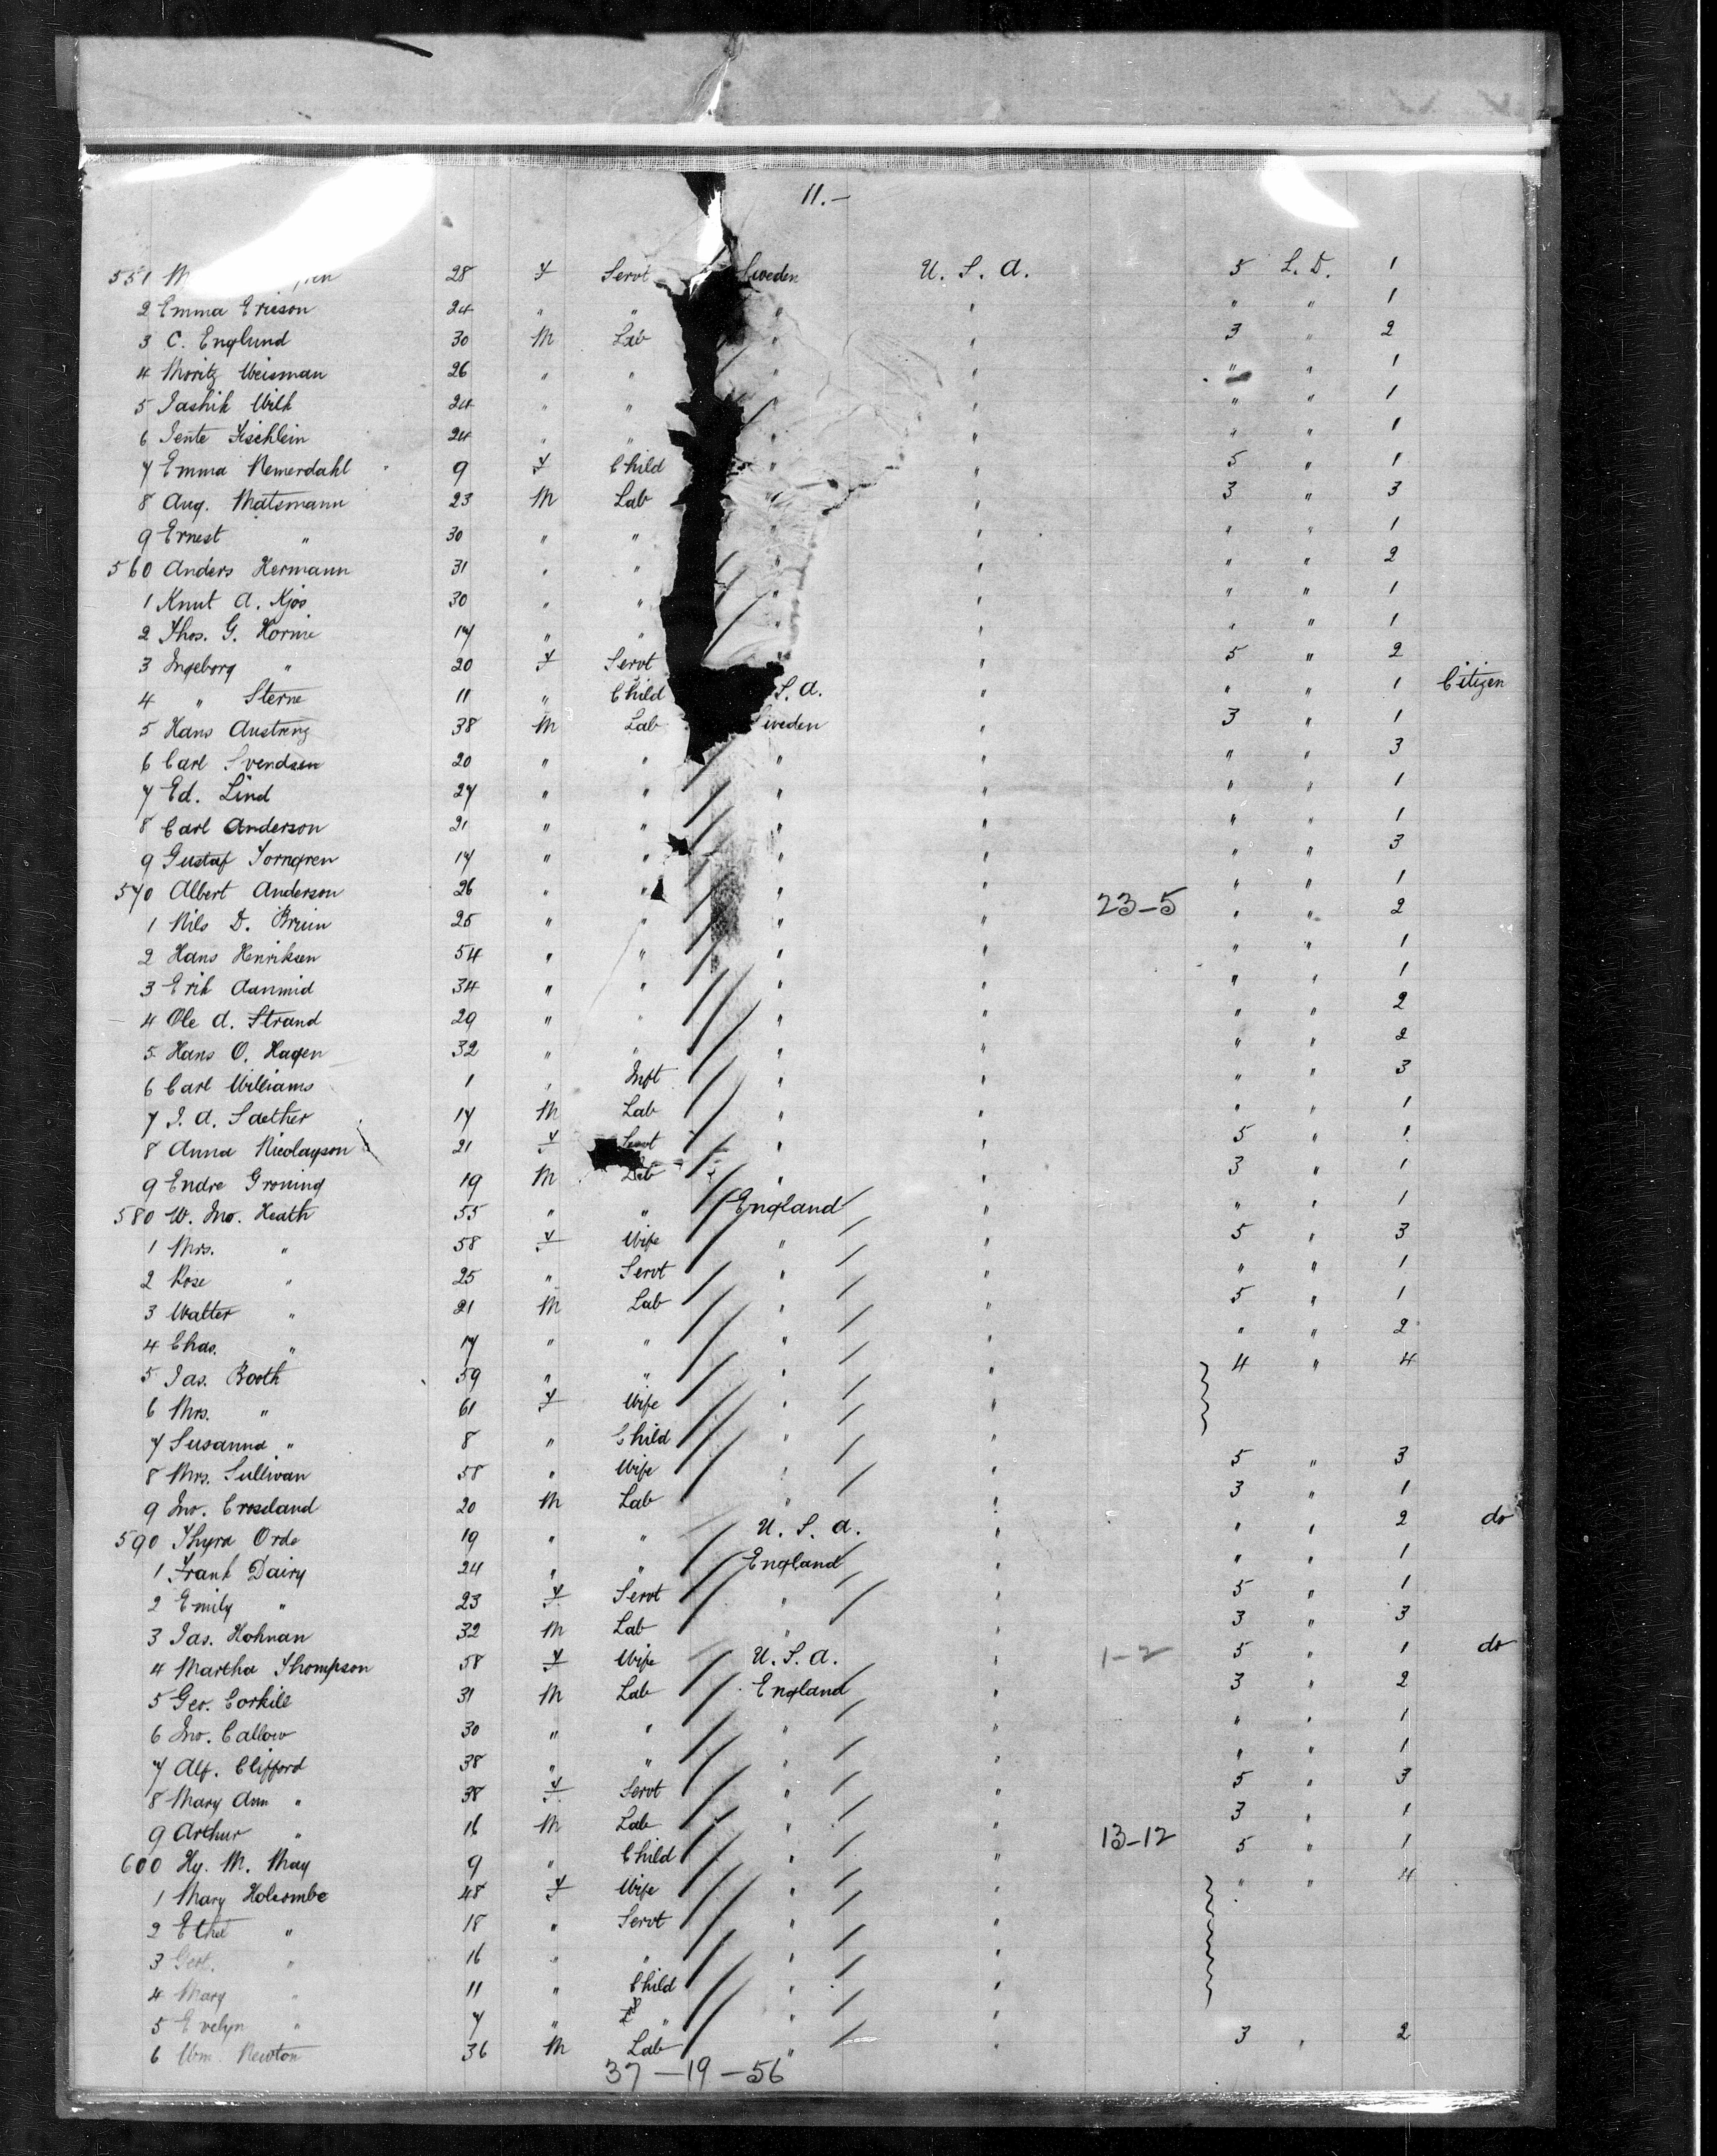 11.–
551 M 28 F Servt Sweden U. S. A. 5 L. D. 1
2 Emma Ericson 24 " " " " " " 1
3 C. Englund 30 M Lab " " 3 " 2
4 Moritz Weisman 26 " " " " " " 1
5 Jashik Wilk 24 " " " " " " 1
6 Jente Fischlein 24 " " " " " " 1
7 Emma Nemerdahl 9 F Child " " 5 " 1
8 Aug. Matsmann 23 M Lab " " 3 " 3
9 Ernest " 30 " " " " " " 1
560 Anders Hermann 31 " " " " " " 2
1 Knut A. Kjos 30 " " " " " " 1
2 Thos. G. Hornie 17 " " " " " " 1
3 Ingeborg " 20 F Servt " " 5 " 2
4 " Sterne 11 " Child S. A. " " " 1 Citizen
5 Hans Austreng 38 M Lab Sweden " 3 " 1
6 Carl Svendsen 20 " " " " " " 3
7 Ed. Lind 27 " " " " " " 1
8 Carl Anderson 21 " " " " " " 1
9 Gustaf Torngren 17 " " " " " " 3
570 Albert Anderson 26 " " " " 23–5 " " 1
1 Nils D. Bruun 25 " " " " " " 2
2 Hans Henriksen 54 " " " " " " 1
3 Erik Aanmid 34 " " " " " " 1
4 Ole A. Strand 29 " " " " " " 2
5 Hans O. Hagen 32 " " " " " " 2
6 Carl Williams 1 " Inft " " " " 3
7 J. A. Saether 17 M Lab " " " " 1
8 Anna Nicolayson 21 F Servt " " 5 " 1
9 Endre Groning 19 M Lab " " 3 " 1
580 W. Jno. Heath 55 " " England " " " 1
1 Mrs. " 58 F Wife " " 5 " 3
2 Rose " 25 " Servt " " " " 1
3 Walter " 21 M Lab " " 5 " 1
4 Chas. " 17 " " " " " " 2
5 Jas. Booth 59 " " " " 4 " 4
6 Mrs. " 61 F Wife " "
7 Susanna " 8 " Child " "
8 Mrs. Sullivan 58 " Wife " " 5 " 3
9 Jno. Crossland 20 M Lab " " 3 " 1
590 Thyra Orde 19 " " U. S. A. " " " 2 do
1 Frank Dairy 24 " " England " " " 1
2 Emily " 23 F Servt " " 5 " 1
3 Jas. Hohnan 32 M Lab " " 3 " 3
4 Martha Thompson 58 F Wife U. S. A. " 1–2 5 " 1 do
5 Geo. Corkill 31 M Lab England " 3 " 2
6 Jno. Callow 30 " " " " " " 1
7 Alf. Clifford 38 " " " " " " 1
8 Mary Ann " 38 F Servt " " 5 " 3
9 Arthur " 16 M Lab " " 3 " 1
600 Hy. M. May 9 " Child " " 13–12 5 " 1
1 Mary Holcombe 48 F Wife " " " " 4
2 Ethel " 18 " Servt " "
3 Gert. " 16 " " " "
4 Mary " 11 " Child " "
5 Evelyn " 7 " " " "
6 Wm. Newton 36 M Lab " " 3 " 2
37–19–56